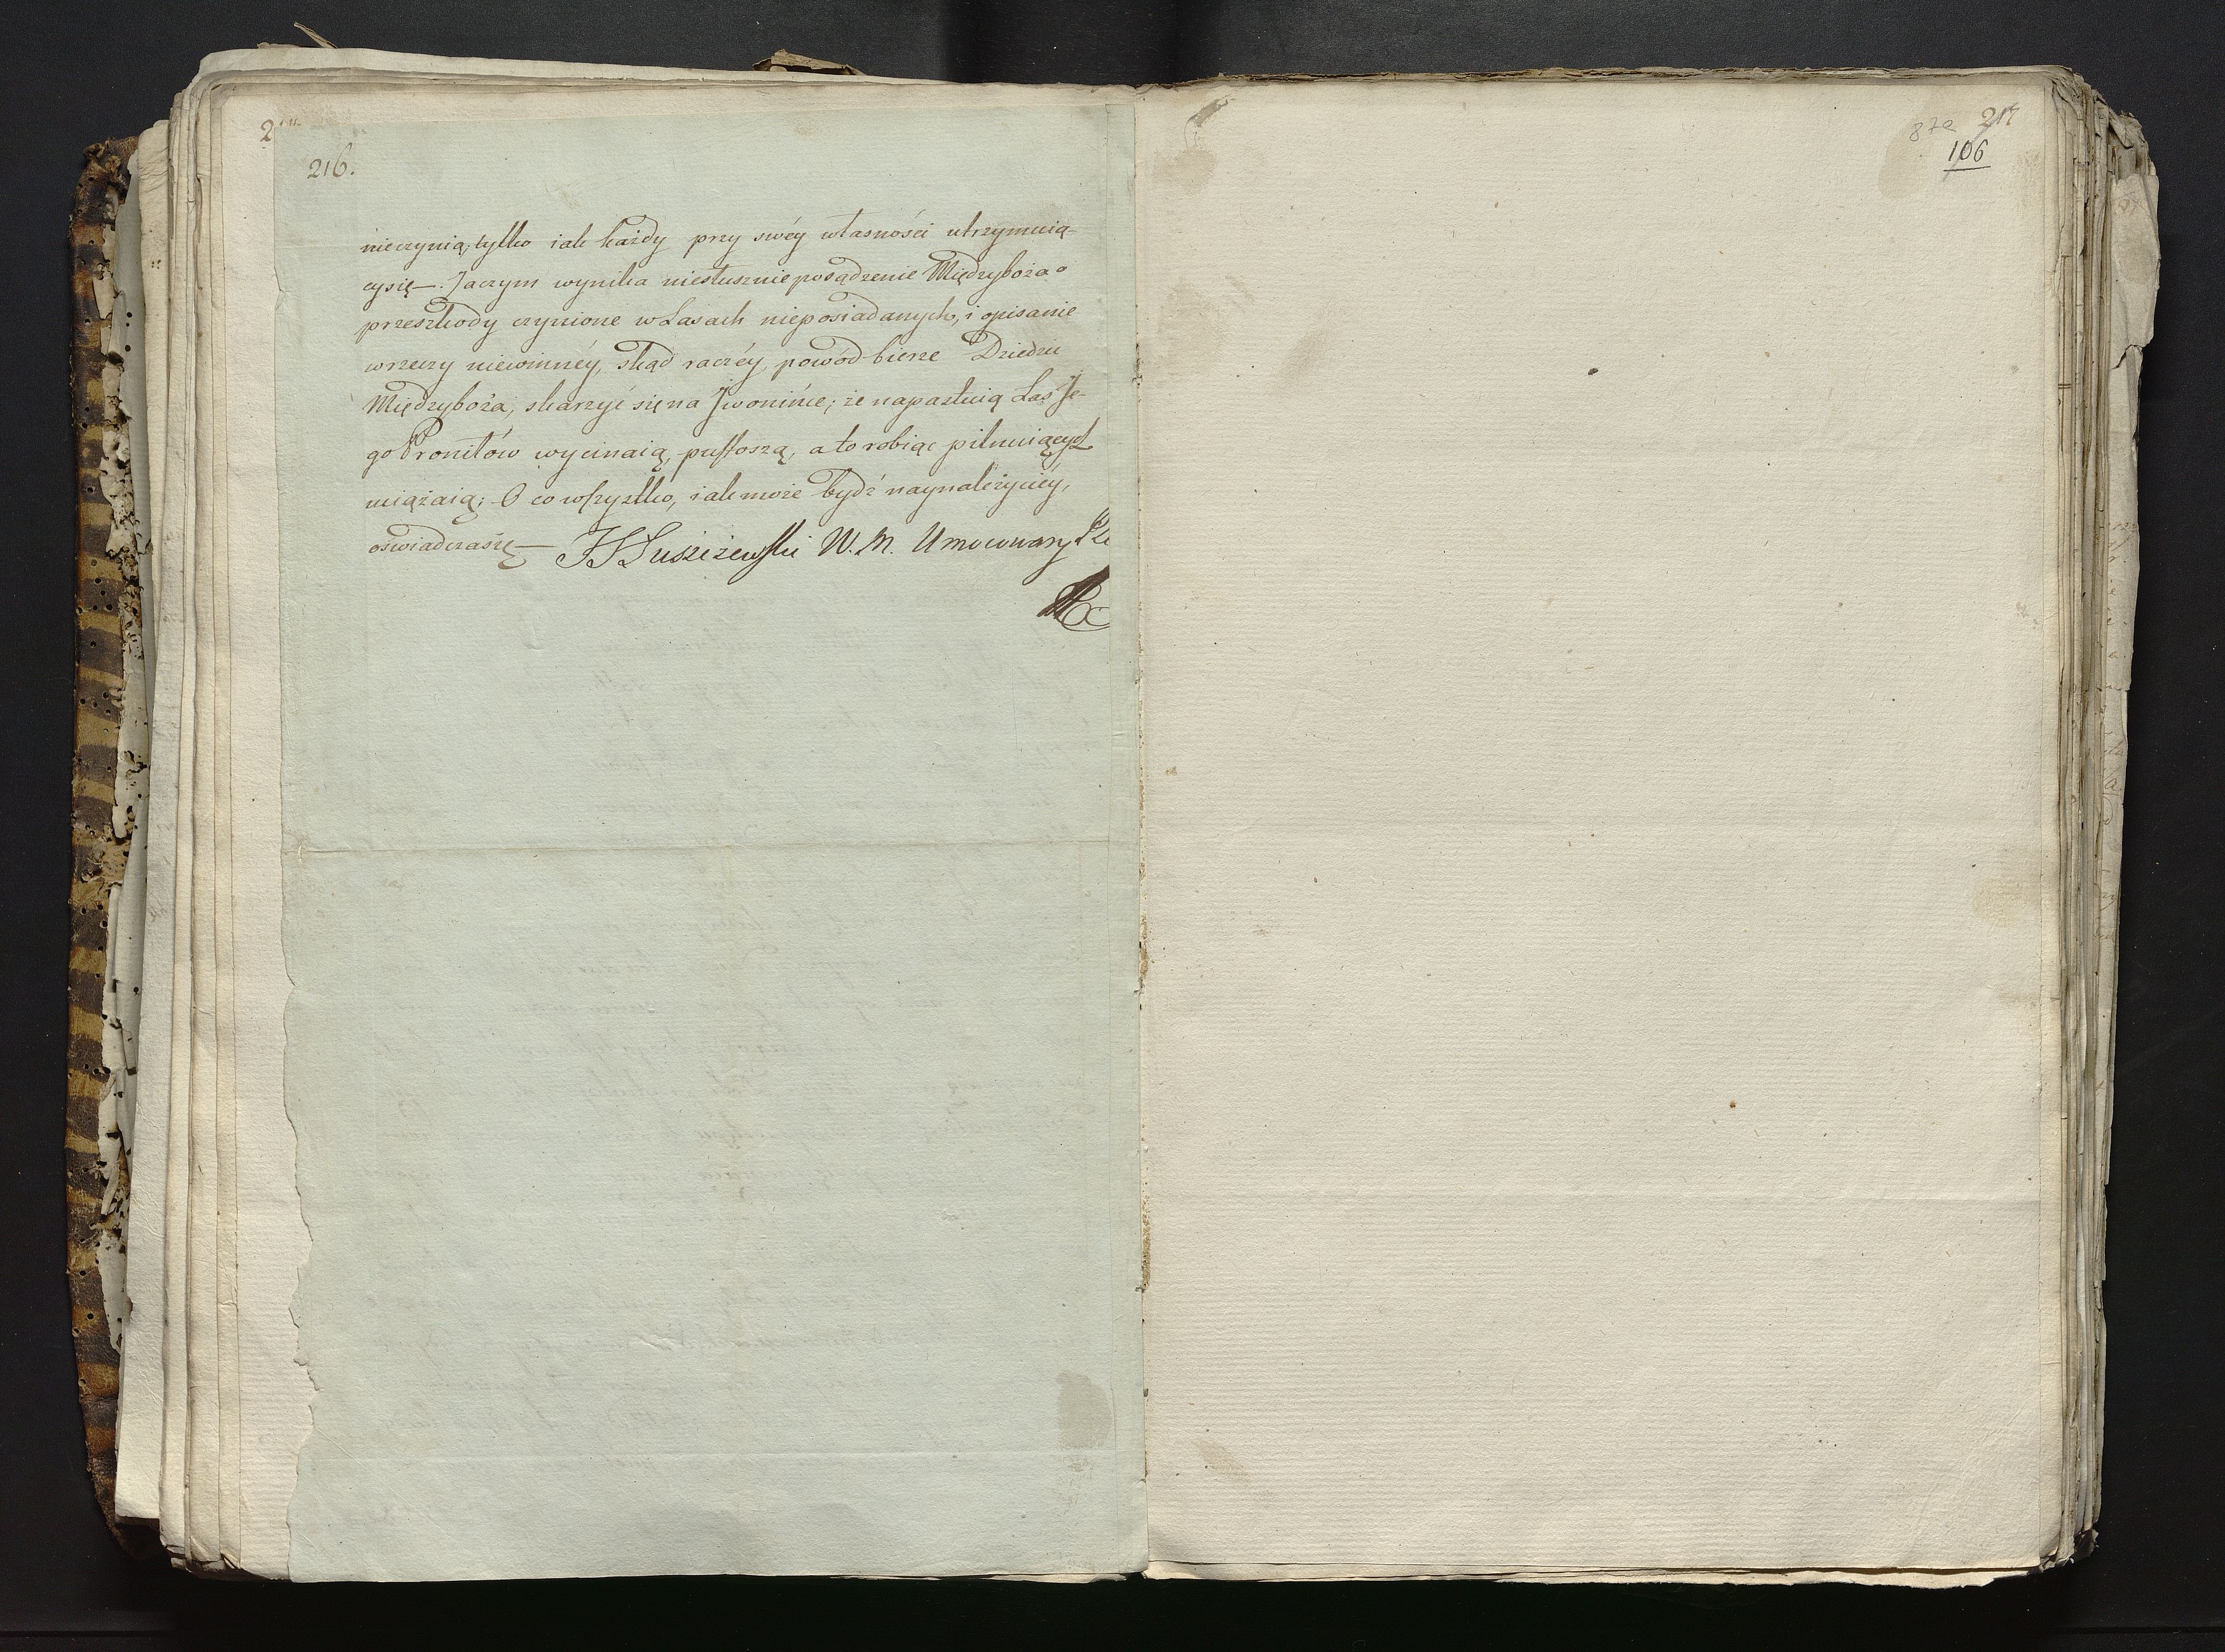 216.
nieczynią, tylko iak każdy przy swéy własności utrzymuią-
cy się. Zaczym wynika niesłusznie posądzenie Międzyboża o
przeszkody czynione w Lasach nieposiadanych, i opisanie
w rzeczy niewinnéy, skąd raczéy powód bierze Dziedzic
Międzyboża, skarżyć się na Jwonińce; że napastuią Las Je-
go Pronitów wycinaią, pustoszą, a to robiąc pilnuiących
uciążaią; O co wszystko, iak może bydź naynależyciéy,
oświadcza się
Suszczewski W. M. Umocowany
87a 217
106